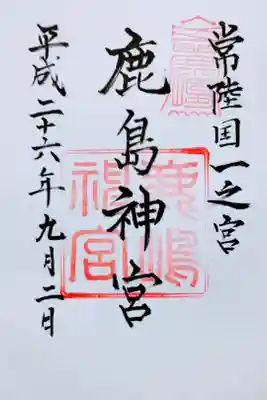 常陸国一之宮
鹿島神宮
平成二十六年九月二日
鹿嶋
神宮